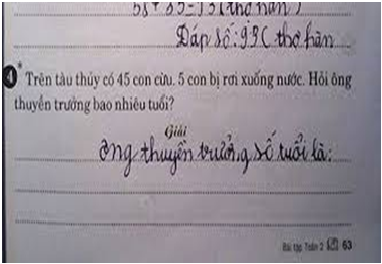 58 + 35 = 93 (thợ hàn)
Đáp số: 93 ( thợ hàn
4* Trên tàu thủy có 45 con cừu. 5 con bị rơi xuống nước. Hỏi ông
thuyền trưởng bao nhiêu tuổi?
Giải
ông thuyền trưởng số tuổi là:
Bài tập Toán 2 63